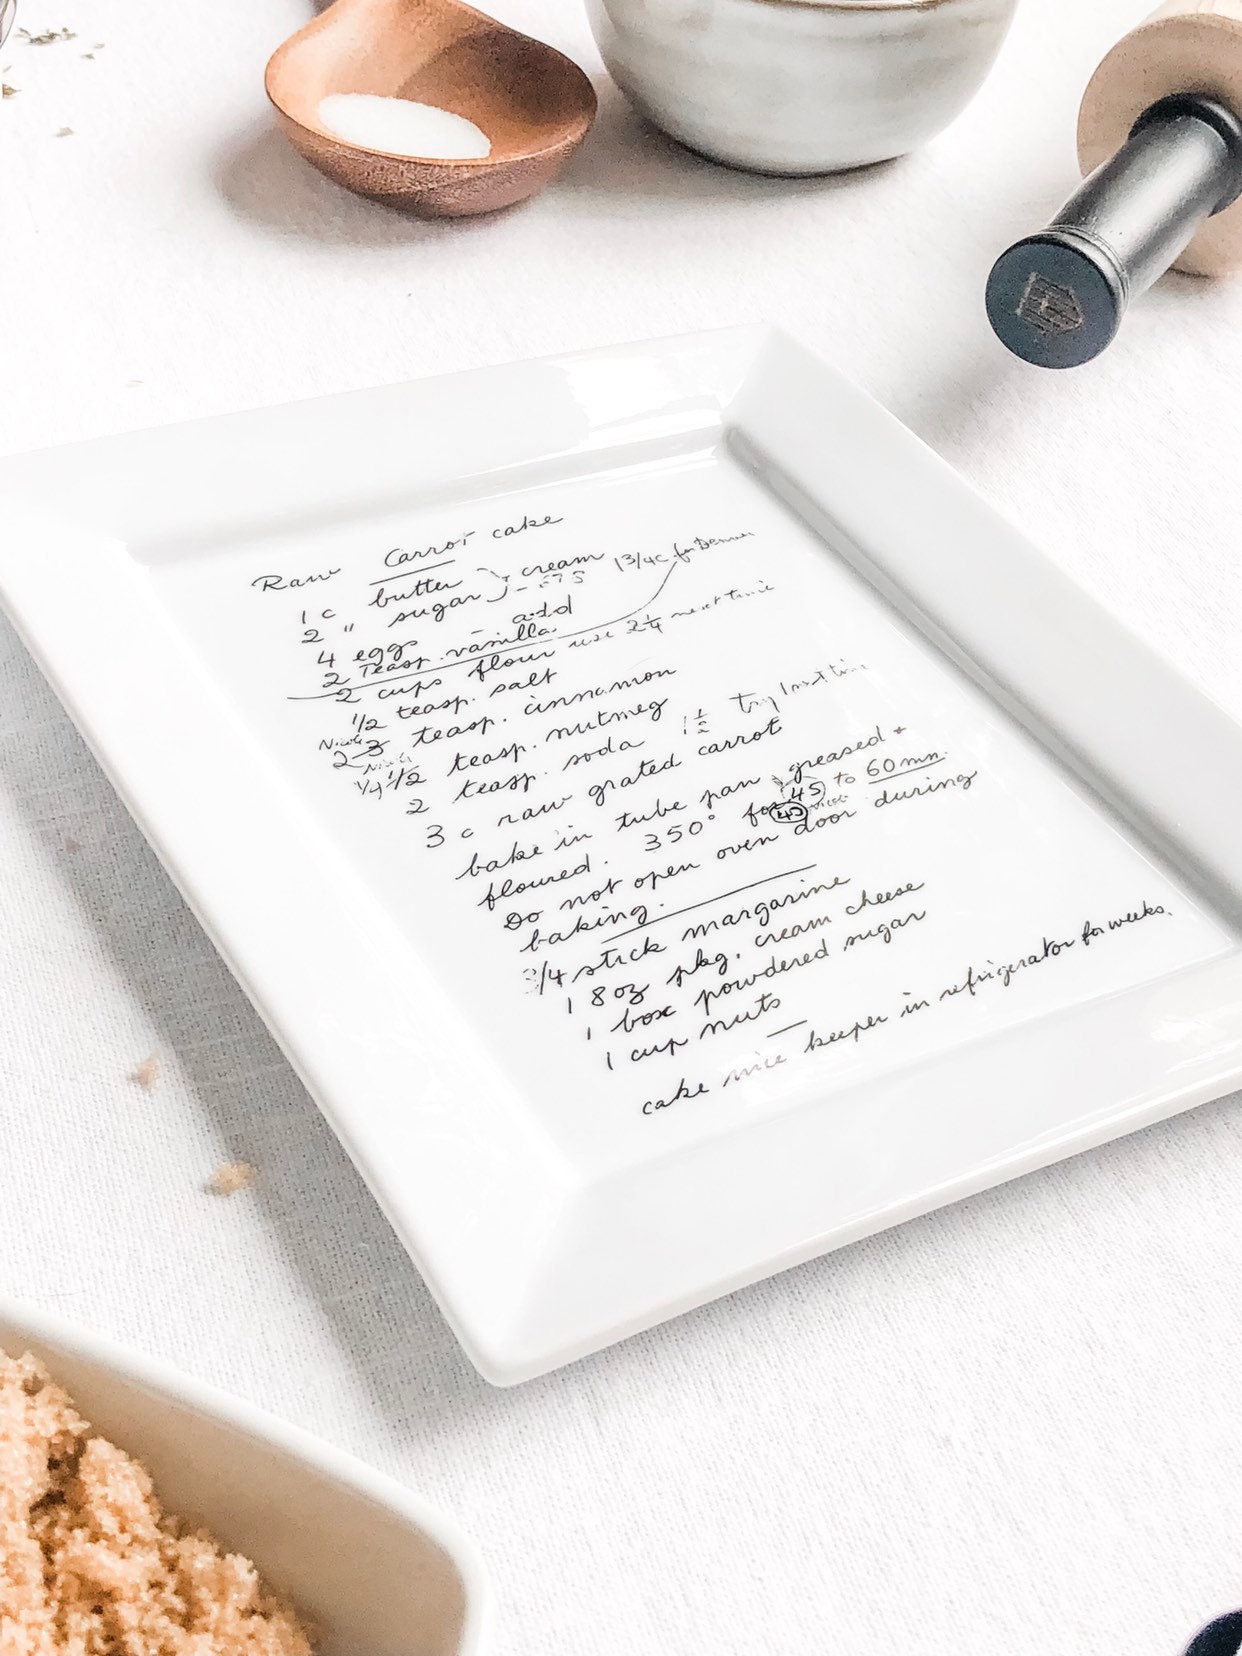 Raw Carrot cake
1 c butter } cream
2 " sugar 1 3/4 c. for
4 eggs - add
2 Teasp. vanilla
2 cups flour use 2 1/4 next time
1/2 teasp. salt
2 3 teasp. cinnamon
1/4 1/2 teasp. nutmeg
2 teasp. soda 1 1/2 try 1 next time
3 c raw grated carrot
bake in tube pan greased +
floured. 350° for 45 to 60 mn.
45
Do not open oven door during
baking.
3/4 stick margarine
1 8 oz pkg. cream cheese
1 box powdered sugar
1 cup nuts
cake nice keeper in refrigerator for weeks.